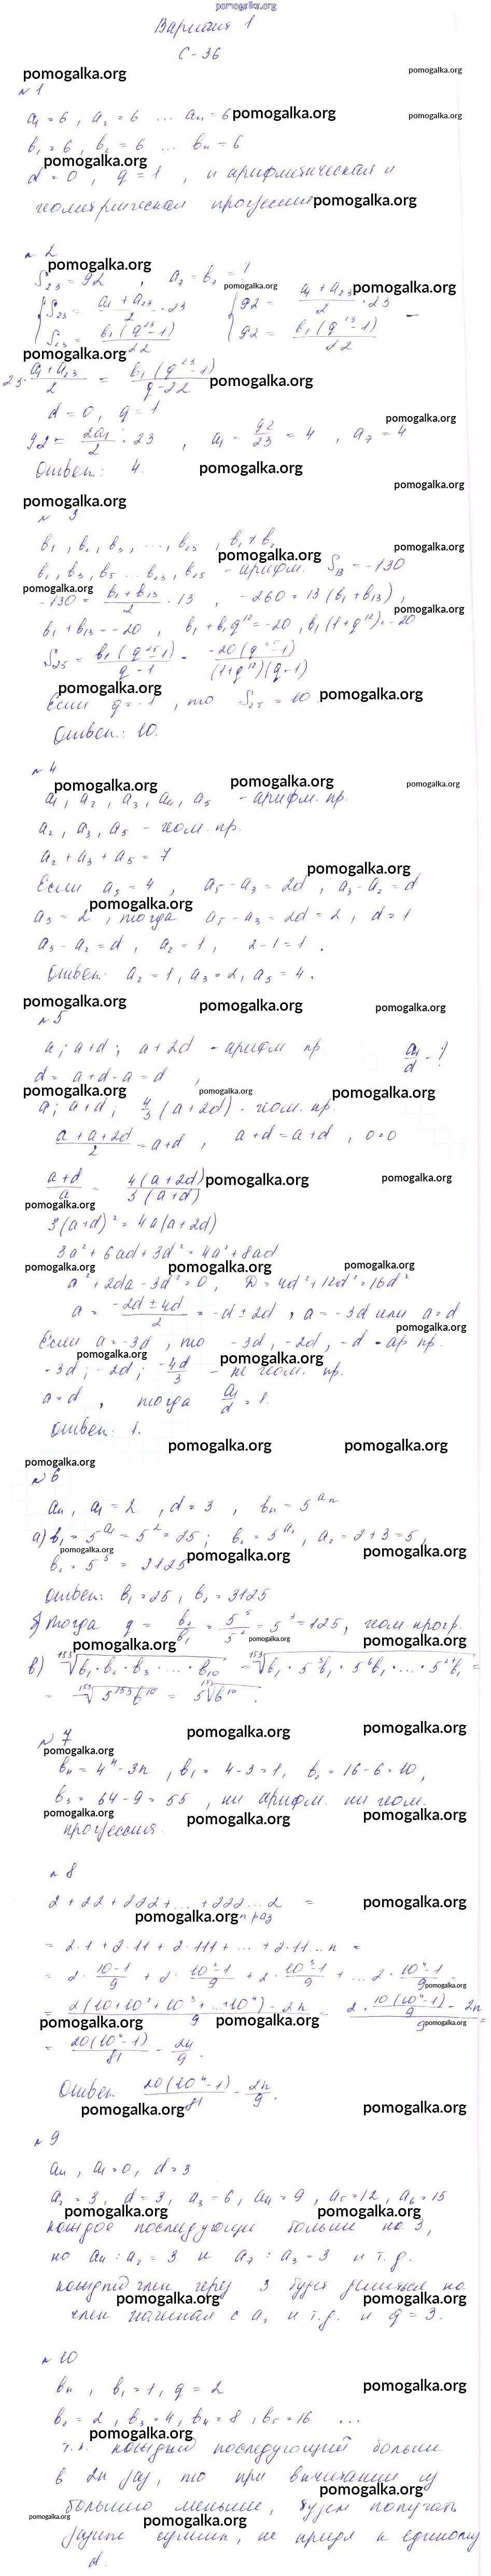 pomogalka.org
Вариант 1
С-36
pomogalka.org pomogalka.org
№1
a₁=6, a₂=6 ... aₙ=6 pomogalka.org pomogalka.org
b₁=6, b₂=6 ... bₙ=6
pomogalka.org
d=0, q=1, и арифметическая и
геометрическая прогрессия pomogalka.org
№2
pomogalka.org
S₂₃=92, a₇=b₇=?
pomogalka.org pomogalka.org
S₂₃ = (a₁+a₂₃)/2 · 23 92 = (a₁+a₂₃)/2 · 23
pomogalka.org
pomogalka.org
d=0, q=1
pomogalka.org
92 = 2a₁/2 · 23, a₁ = 92/23 = 4, a₇=4
Ответ: 4. pomogalka.org
pomogalka.org
pomogalka.org
№3
b₁, b₂, b₃, ..., b₂₅, b₁≠b₂
pomogalka.org pomogalka.org
b₁, b₃, b₅ ... b₂₃, b₂₅ - арифм. S₁₃=-130
pomogalka.org
-130 = (b₁+b₁₃)/2 · 13, -260=13(b₁+b₁₃),
pomogalka.org
b₁+b₁₃=-20, b₁+b₁q¹²=-20, b₁(1+q¹²)=-20
S₂₅ = b₁(q²⁵-1)/(q-1) = -20(q²⁵-1)/((1+q¹²)(q-1))
pomogalka.org
Если q=-1, то S₂₅=10 pomogalka.org
Ответ: 10.
№4
pomogalka.org pomogalka.org pomogalka.org
a₁, a₂, a₃, a₄, a₅ - арифм. пр.
a₂, a₃, a₅ - геом. пр.
a₂+a₃+a₅=7
pomogalka.org
Если a₅=4, a₅-a₃=2d, a₃-a₂=d
pomogalka.org
a₃=2, тогда a₅-a₃=2d=2, d=1
a₃-a₂=d, a₂=1, 2-1=1.
Ответ: a₂=1, a₃=2, a₅=4.
pomogalka.org pomogalka.org pomogalka.org
№5
a; a+d; a+2d - арифм пр a₁/d - ?
d = a+d-a=d,
pomogalka.org pomogalka.org pomogalka.org
a; a+d; 4/3(a+2d) - геом. пр.
(a+a+2d)/2 = a+d, a+d=a+d, 0=0
(a+d)/a = 4(a+2d)/3(a+d) pomogalka.org pomogalka.org
pomogalka.org
3(a+d)²=4a(a+2d)
3a²+6ad+3d²=4a²+8ad
pomogalka.org pomogalka.org pomogalka.org
a²+2da-3d²=0, D=4d²+12d²=16d²
a = (-2d±4d)/2 = -d±2d, a=-3d или a=d
pomogalka.org
Если a=-3d, то -3d, -2d, -d - ар пр.
pomogalka.org pomogalka.org
-3d; -2d; -4d/3 - не геом. пр.
a=d, тогда a₁/d=1.
Ответ: 1.
pomogalka.org pomogalka.org
pomogalka.org
№6
aₙ, a₁=2, d=3, bₙ=5^aₙ
а) b₁=5^a₁=5²=25; b₂=5^a₂, a₂=2+3=5,
pomogalka.org pomogalka.org pomogalka.org
b₂=5⁵=3125
Ответ: b₁=25, b₂=3125
б) Тогда q = b₂/b₁ = 5⁵/5² = 5³=125, геом. прогр.
pomogalka.org pomogalka.org pomogalka.org
в) ¹⁵³√(b₁·b₂·b₃·...·b₁₀) = ¹⁵³√(b₁·5³b₁·5⁶b₁·...·5²⁷b₁) =
= ¹⁵³√(5¹⁵³b¹⁰) = 5 ¹⁵³√b¹⁰.
pomogalka.org pomogalka.org
№7
pomogalka.org
bₙ=4ⁿ-3n, b₁=4-3=1, b₂=16-6=10,
b₃=64-9=55, ни арифм. ни геом.
pomogalka.org pomogalka.org pomogalka.org
прогрессия.
№8
2+22+222+...+222...2 = pomogalka.org
pomogalka.org n раз
= 2·1+2·11+2·111+...+2·11...n =
= 2·(10-1)/9 + 2·(10²-1)/9 + 2·(10³-1)/9 + ... 2·(10ⁿ-1)/9 =
pomogalka.org
= (2(10+10²+10³+...+10ⁿ) - 2n)/9 = (2·10(10ⁿ-1)/9 - 2n)/9 =
pomogalka.org pomogalka.org pomogalka.org
= 20(10ⁿ-1)/81 - 2n/9.
Ответ 20(10ⁿ-1)/81 - 2n/9.
pomogalka.org pomogalka.org
№9
aₙ, a₁=0, d=3
a₂=3, d=3, a₃=6, a₄=9, a₅=12, a₆=15
pomogalka.org pomogalka.org
каждое последующие больше на 3,
но a₄:a₂=3 и a₇:a₃=3 и т.д.
каждый член через 3 будет делиться на
pomogalka.org pomogalka.org
член начиная с a₂ и т.д. и q=3.
№10
pomogalka.org
bₙ, b₁=1, q=2
b₂=2, b₃=4, b₄=8, b₅=16 ...
pomogalka.org
т.к. каждый последующий больше
в 2n раз, то при вычитании из
pomogalka.org
большего меньшее, будем получать
pomogalka.org pomogalka.org
разные суммы, не придя к единому
d.